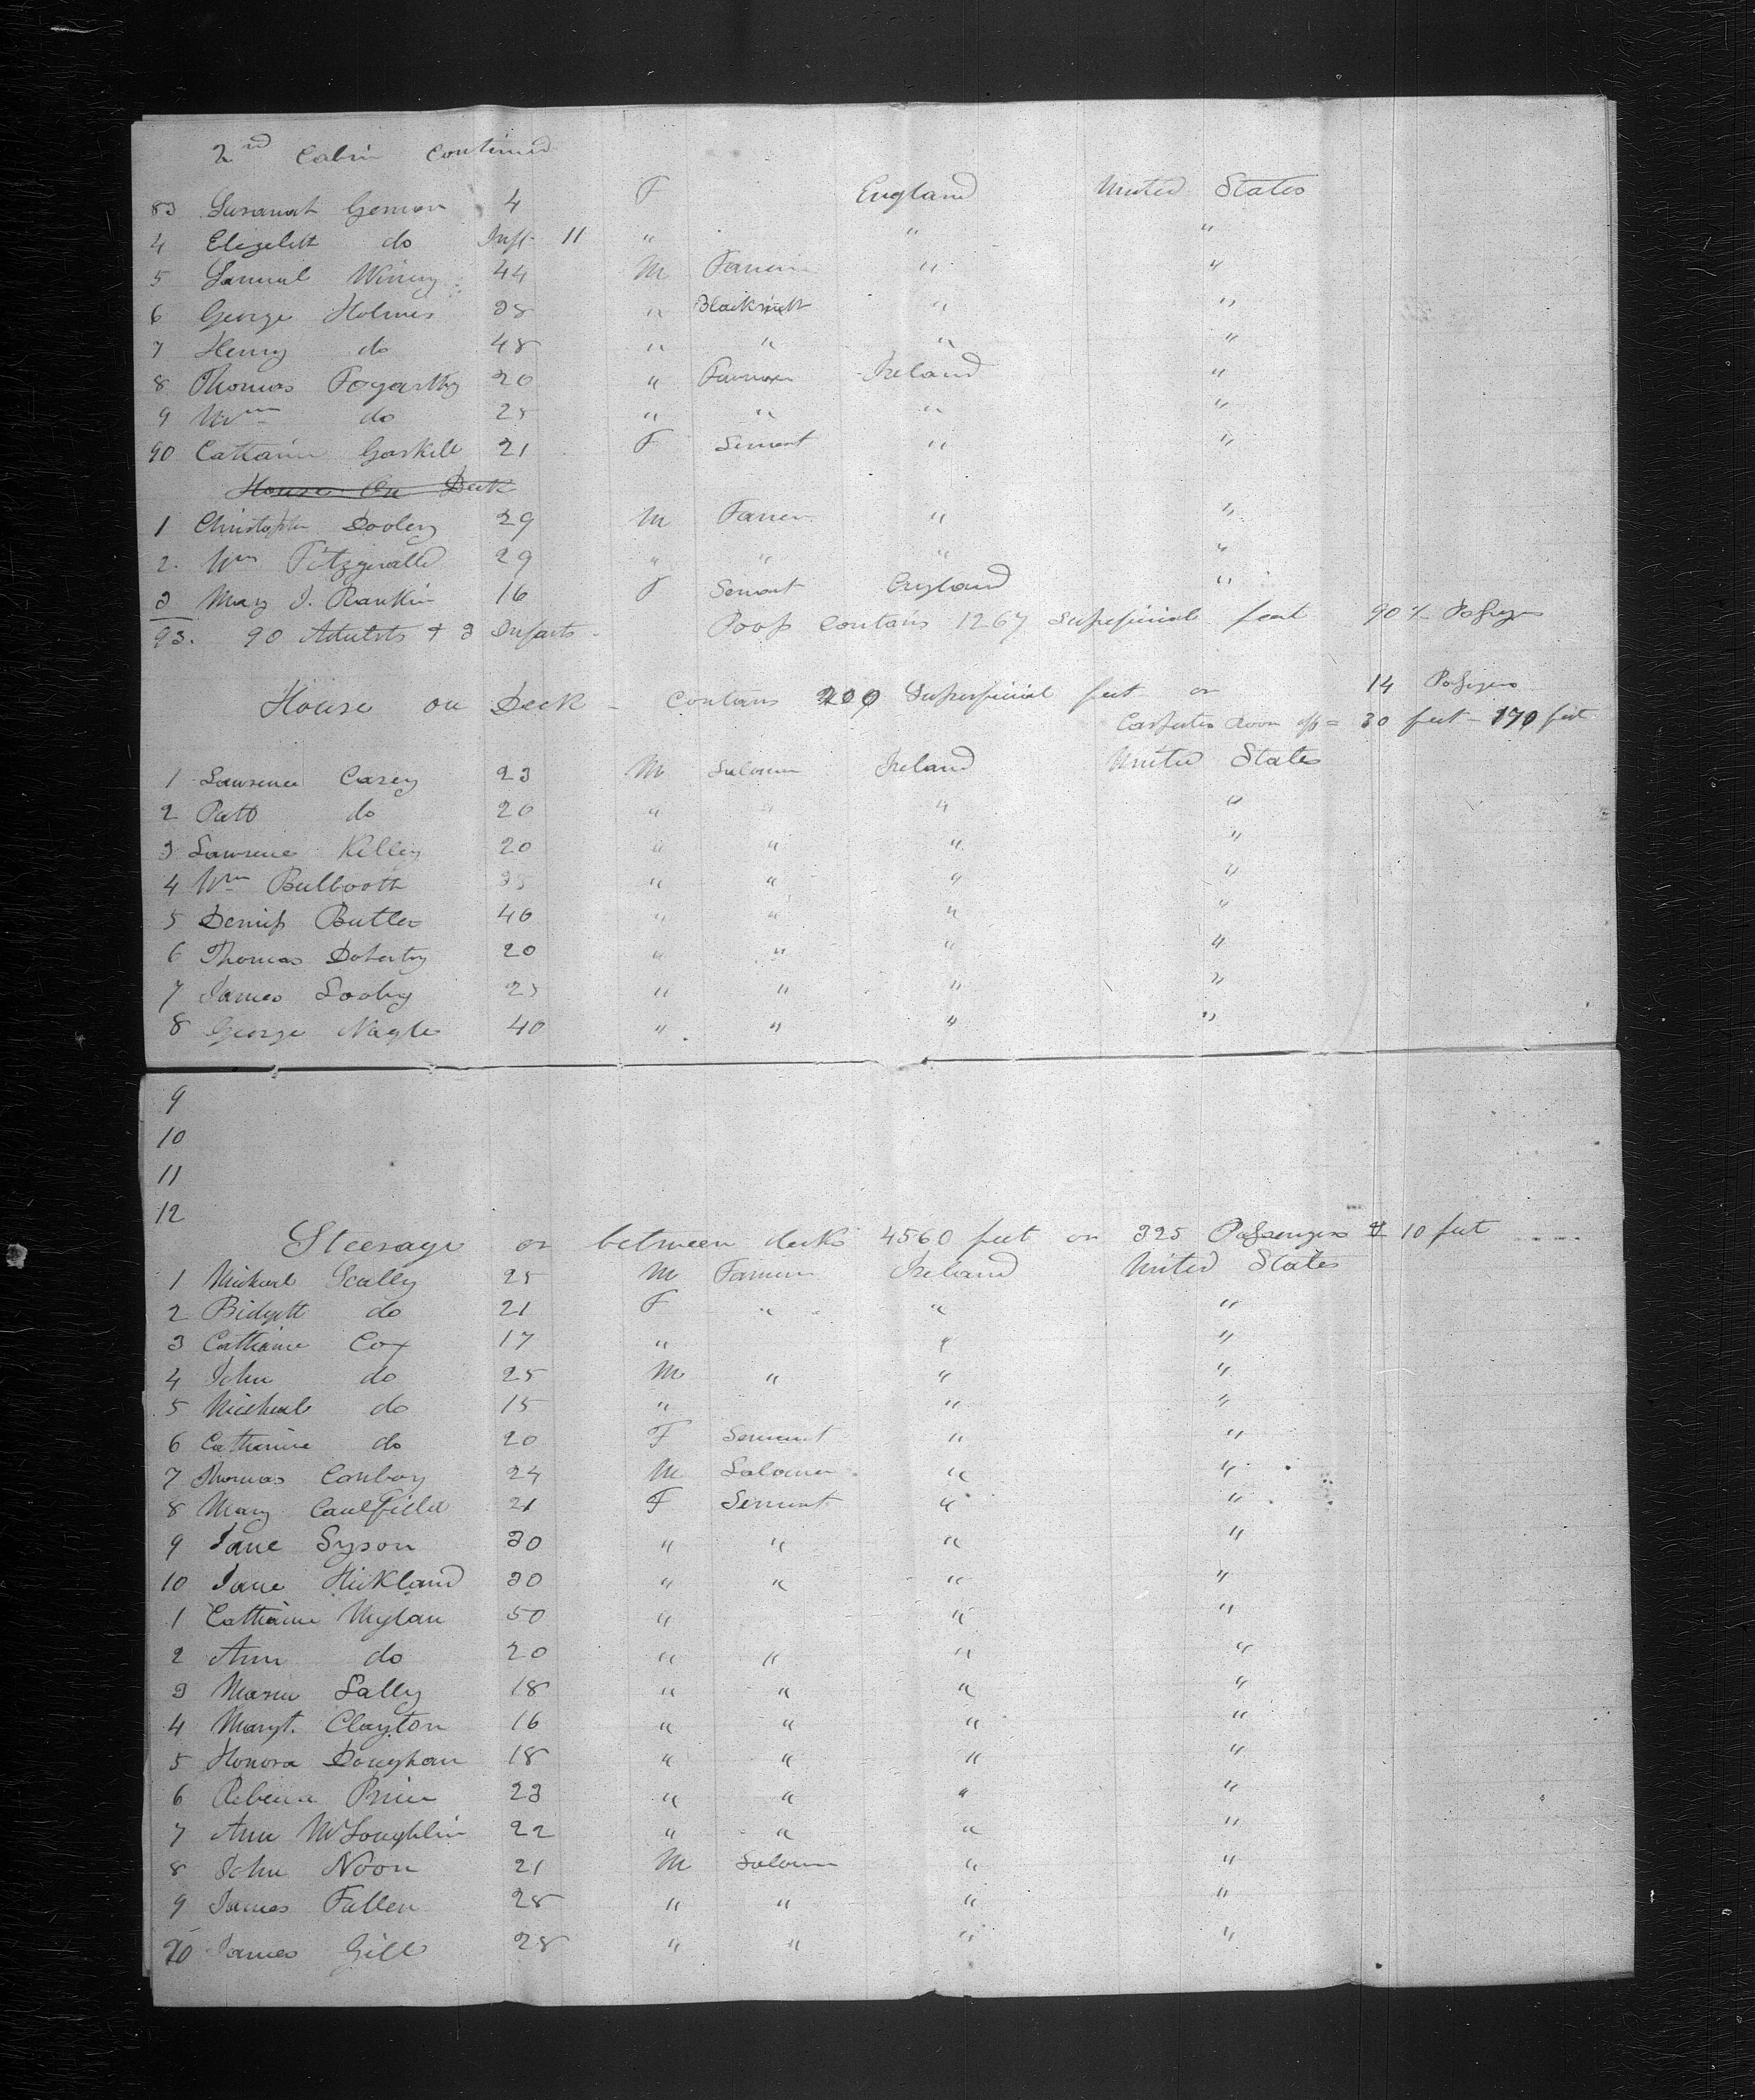 2nd Cabin Continued
83 Susanah Gernon 4 F England United States
4 Elizabeth do Inft 11 " " "
5 Samuel Winny 44 M Farmer " "
6 George Holmes 38 " Blacksmith " "
7 Henry do 48 " " " "
8 Thomas Fogarthy 20 " Farmer Ireland "
9 Wm do 25 " " " "
90 Catharine Gaskill 21 F Servant " "
House On Deck
1 Christopher Dooley 29 M Farmer " "
2. Wm Fitzgerald 29 " " " "
3 Mary J. Rankin 16 F Servant England "
93. 90 Adults & 3 Infants - Poop Contains 1267 Superficial feet 90 ½ Passgrs
House on Deck - Contains 200 Superficial feet or 14 Passgrs
Carpenters Room off = 30 feet - 170 feet
1 Lawrence Carey 23 M Laborer Ireland United States
2 Patk do 20 " " " "
3 Lawrence Kelley 20 " " " "
4 Wm Bulbooth 35 " " " "
5 Dennis Butler 40 " " " "
6 Thomas Doherty 20 " " " "
7 James Looby 25 " " " "
8 George Nagle 40 " " " "
9
10
11
12
Steerage or between decks 4560 feet or 325 Passengers & 10 feet
1 Michael Scally 25 M Farmer Ireland United States
2 Bidgett do 21 F " " "
3 Catharine Cox 17 " " "
4 John do 25 M " " "
5 Micheal do 15 " " "
6 Catharine do 20 F Servant " "
7 Thomas Conboy 24 M Laborer " "
8 Mary Caulfield 21 F Servant " "
9 Jane Syson 30 " " " "
10 Jane Hickland 30 " " " "
1 Catharine Mylan 50 " " "
2 Ann do 20 " " " "
3 Maria Lally 18 " " " "
4 Margt. Clayton 16 " " " "
5 Honora Doughan 18 " " " "
6 Rebecca Brien 23 " " " "
7 Ann McLoughlin 22 " " " "
8 John Noon 21 M Laborer " "
9 James Fallen 28 " " " "
20 James Gill 28 " " " "